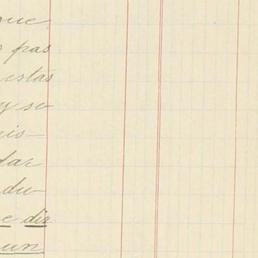 que
pas
estas
y se
is-
dar
du-
e dia
un